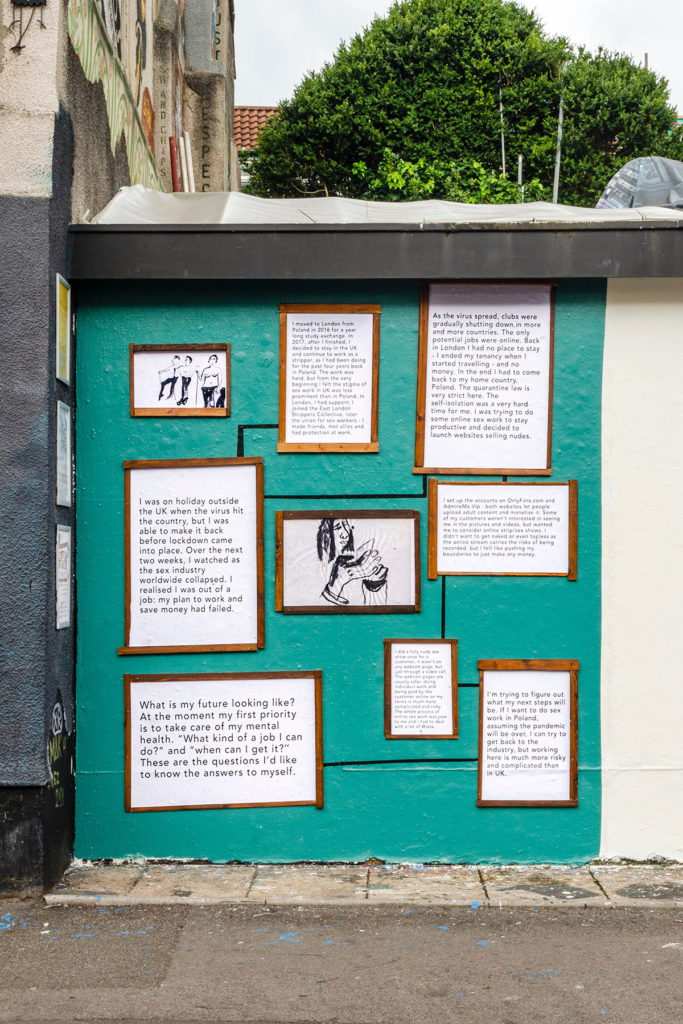 I moved to London from
Poland in 2016 for a year
long study exchange. In
2017, after I finished, I
decided to stay in the UK
and continue to work as a
stripper, as I had been doing
for the past four years back
in Poland. The work was
hard, but from the very
beginning I felt the stigma of
sex work in UK was less
prominent than in Poland. In
London, I had support: I
joined the East London
Strippers Collective, later
the union for sex workers - I
made friends, met allies and
had protection at work.
I was on holiday outside
the UK when the virus hit
the country, but I was
able to make it back
before lockdown came
into place. Over the next
two weeks, I watched as
the sex industry
worldwide collapsed. I
realised I was out of a
job: my plan to work and
save money had failed.
As the virus spread, clubs were
gradually shutting down in more
and more countries. The only
potential jobs were online. Back
in London I had no place to stay
- I ended my tenancy when I
started travelling - and no
money. In the end I had to come
back to my home country,
Poland. The quarantine law is
very strict here. The
self-isolation was a very hard
time for me. I was trying to do
some online sex work to stay
productive and decided to
launch websites selling nudes.
I set up the accounts on OnlyFans.com and
AdmireMe.Vip - both websites let people
upload adult content and monetise it. Some
of my customers weren't interested in seeing
me in the pictures and videos, but wanted
me to consider online strip/sex shows. I
didn't want to get naked or even topless as
the online stream carries the risks of being
recorded, but I felt like pushing my
boundaries to just make any money.
I did a fully nude sex
show once for a
customer, it wasn't on
any webcam page, but
just through a video call.
The webcam pages are
usually safer, doing
individual work and
being paid by the
customer on my
terms is much more
complicated and risky.
The whole process of
online sex work was new
to me and I had to deal
with a lot of stress.
I'm trying to figure out
what my next steps will
be. If I want to do sex
work in Poland,
assuming the pandemic
will be over, I can try to
get back to the
industry, but working
here is much more risky
and complicated than
in UK.
What is my future looking like?
At the moment my first priority
is to take care of my mental
health. "What kind of a job I can
do?" and "when can I get it?"
These are the questions I'd like
to know the answers to myself.